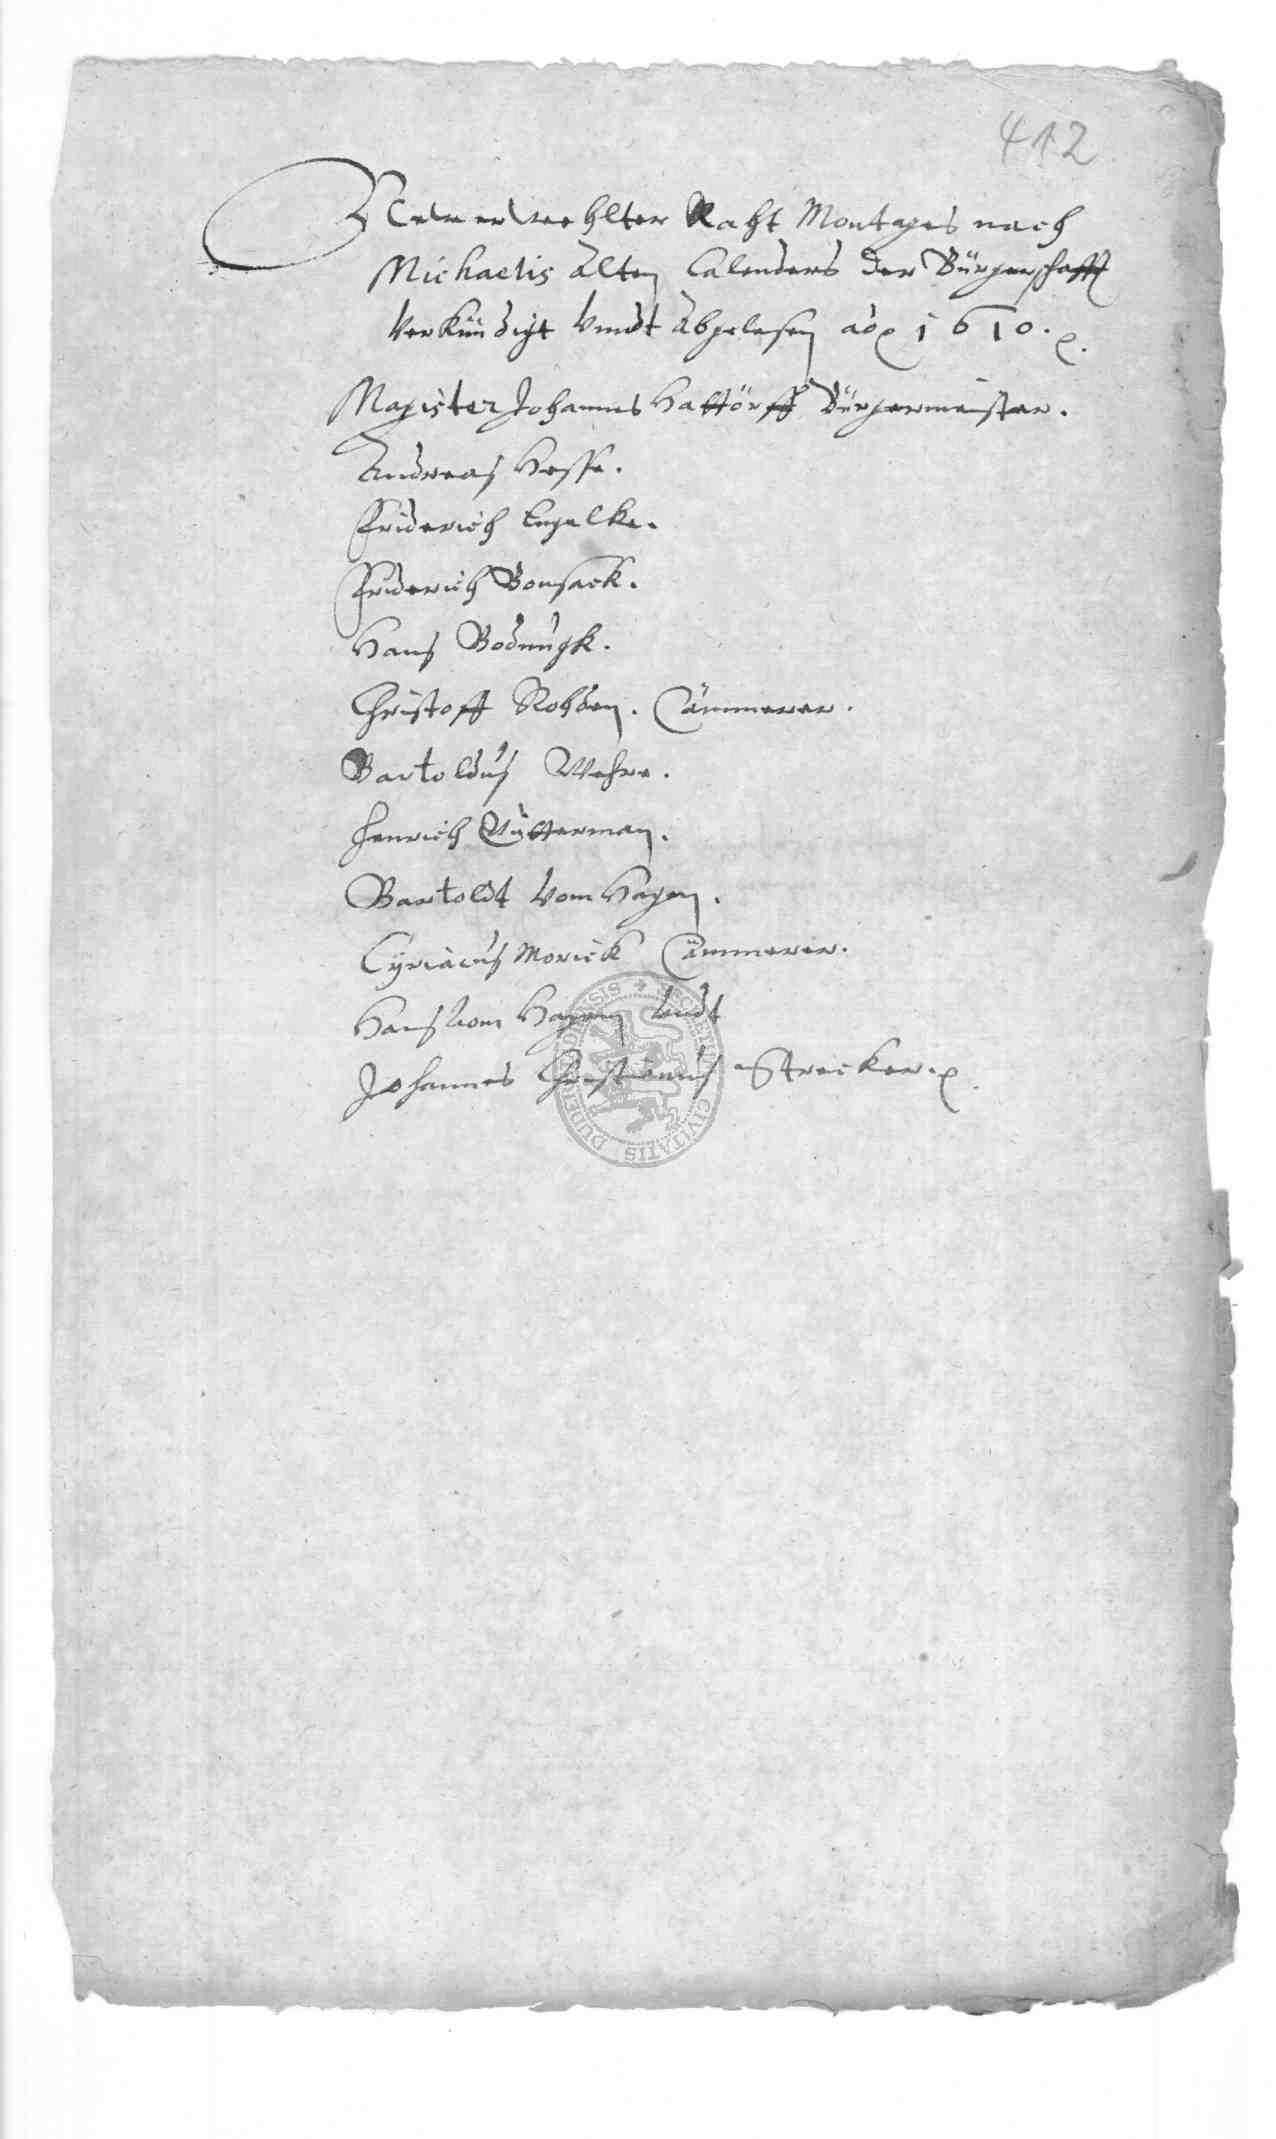 412
Newerwehlter Raht Montages nach
Michaelis Alten Calenders der Bürgerschafft
Verkündigt Vnndt Abgelesen ao 1610.
Magister Johannes Hattorff Bürgermeister.
Andreas Hesse.
Friderich Engelke.
Friderich Bonsack.
Hans Bodungk.
Christoff Rohden. Cämmerer.
Bartoldus Wehre.
Henrich Cütterman.
Bartoldt Vom Hagen.
Cyriacus Morick Cämmerer.
Hans Vom Hagen Vndt
Johannes Christianus Strecker.
SECRETUM CIVITATIS DUDERSTADENSIS